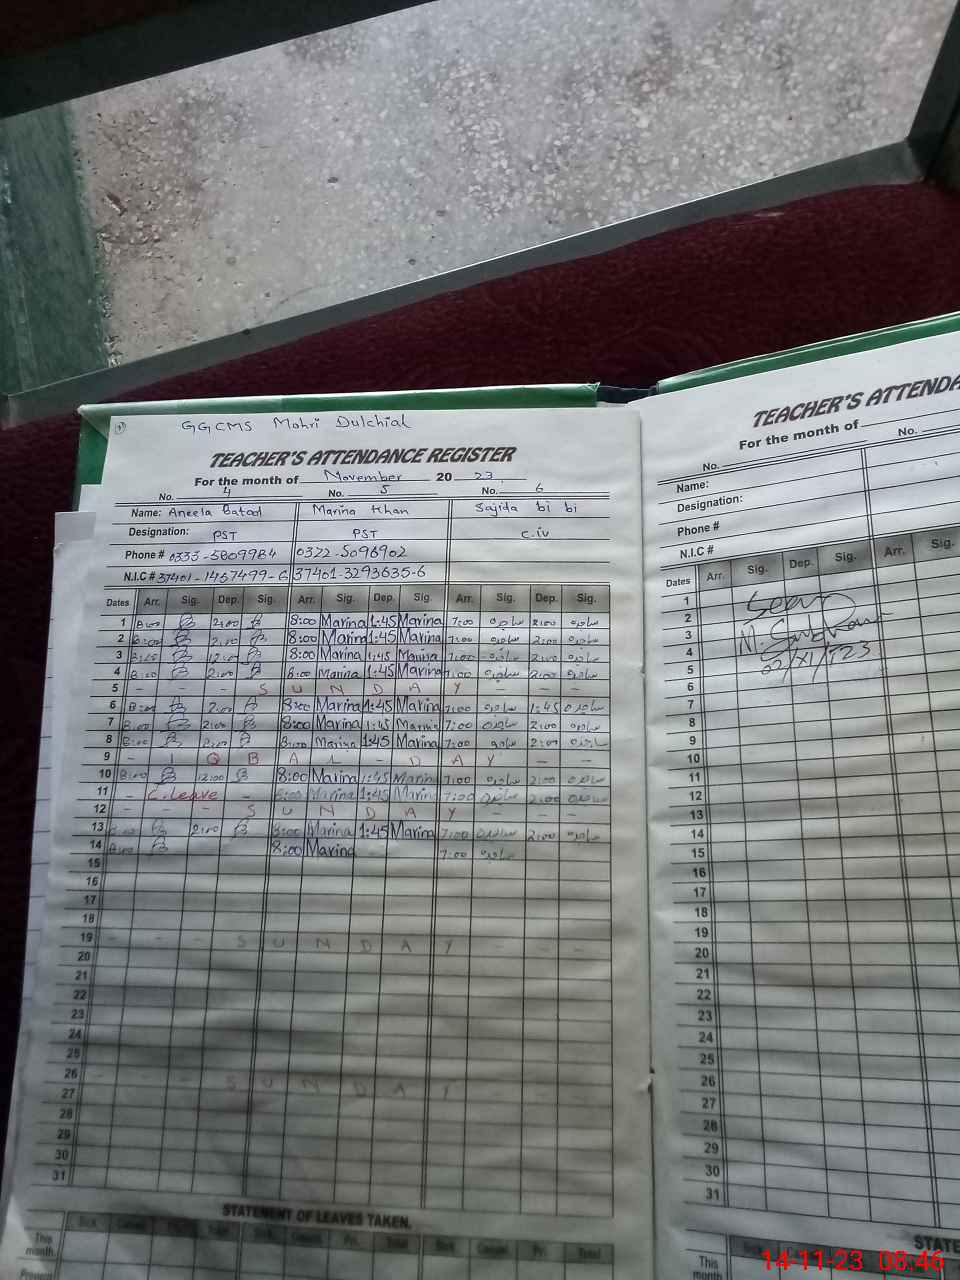 GGCMS Mohri Dulchial
TEACHER'S ATTENDANCE REGISTER
For the month of November 20 23
No. 4 No. 5 No. 6
Name: Aneela Batool Marina Khan Sajida bi bi
Designation: PST PST C.iv
Phone # 0333-5809984 0322-5096902
N.I.C # 37401-1467499-6 37401-3293635-6
Dates Arr. Sig. Dep. Sig. Arr. Sig. Dep. Sig. Arr. Sig. Dep. Sig.
1 8:00 2:00 8:00 Marina 1:45 Marina 7:00 ساجدہ 2:00 ساجدہ
2 8:00 2:00 8:00 Marina 1:45 Marina 7:00 ساجدہ 2:00 ساجدہ
3 8:00 12:00 8:00 Marina 1:45 Marina 7:00 ساجدہ 2:00 ساجدہ
4 8:00 2:00 8:00 Marina 1:45 Marina 7:00 ساجدہ 2:00 ساجدہ
5 - - - S U N D A Y - -
6 8:00 2:00 8:00 Marina 1:45 Marina 7:00 ساجدہ 1:45 ساجدہ
7 8:00 2:00 8:00 Marina 1:45 Marina 7:00 ساجدہ 2:00 ساجدہ
8 8:00 2:00 8:00 Marina 1:45 Marina 7:00 ساجدہ 2:00 ساجدہ
9 - I Q B A L - D A Y - -
10 8:00 12:00 8:00 Marina 1:45 Marina 7:00 ساجدہ 2:00 ساجدہ
11 - C.Leave - 8:00 Marina 1:45 Marina 7:00 ساجدہ 2:00 ساجدہ
12 - - - S U N D A Y - - -
13 8:00 2:00 8:00 Marina 1:45 Marina 7:00 ساجدہ 2:00 ساجدہ
14 8:00 8:00 Marina 7:00 ساجدہ
15
16
17
18
19 - - - S U N D A Y - - -
20
21
22
23
24
25
26 - - - S U N D A Y - - -
27
28
29
30
31
STATEMENT OF LEAVES TAKEN.
This month.
TEACHER'S ATTENDA
For the month of
No. No.
Name:
Designation:
Phone #
N.I.C #
Dates Arr. Sig. Dep. Sig. Arr. Sig.
1
2
3
4
5
6
7
8
9
10
11
12
13
14
15
16
17
18
19
20
21
22
23
24
25
26
27
28
29
30
31
STATE
This month
14-11-23 08:46